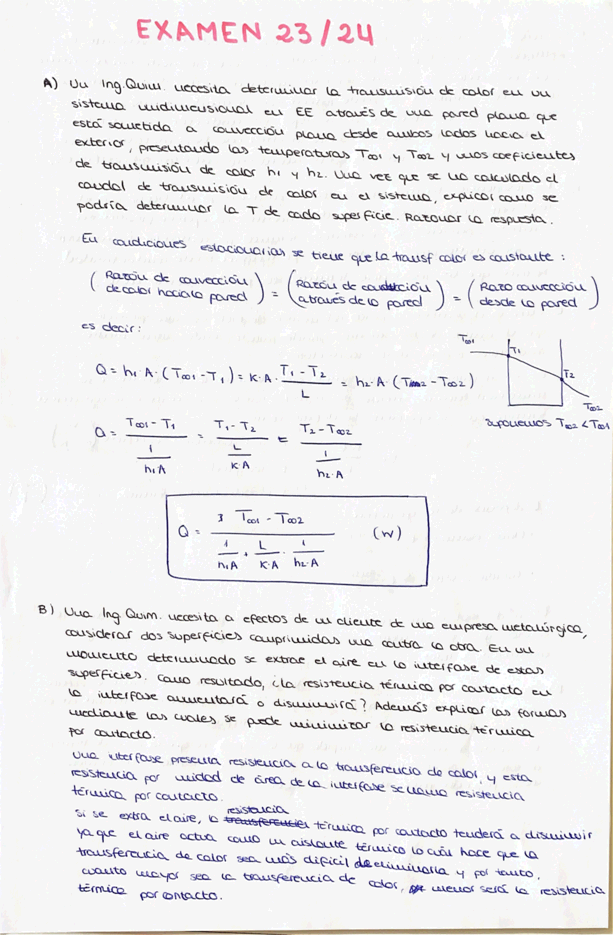 EXAMEN 23/24
A) Un Ing.Quim. necesita determinar la transmisión de calor en un
sistema unidimensional en EE através de una pared plana que
está sometida a convección plana desde ambos lados hacia el
exterior, presentando las temperaturas T∞1 y T∞2 y unos coeficientes
de transmisión de calor h1 y h2. Una vez que se ha calculado el
caudal de transmisión de calor en el sistema, explicar como se
podría determinar la T de cada superficie. Razonar la respuesta.
En condiciones estacionarias se tiene que la transf calor es constante:
(Razón de convección de calor hacia la pared) = (Razón de conducción através de la pared) = (Razo convección desde la pared)
es decir:
Q = h1 A · (T∞1 - T1) = K·A · (T1 - T2)/L = h2·A · (T2 - T∞2)
T∞1
T1
T2
T∞2
suponemos T∞2 < T∞1
Q = (T∞1 - T1)/(1/(h1A)) = (T1 - T2)/(L/(K·A)) = (T2 - T∞2)/(1/(h2·A))
Q = (T∞1 - T∞2)/(1/(h1A) + L/(K·A) · 1/(h2·A)) (W)
B) Una Ing.Quim. necesita a efectos de un cliente de una empresa metalúrgica,
considerar dos superficies comprimidas una contra la otra. En un
momento determinado se extrae el aire en la interfase de estas
superficies. Como resultado, ¿la resistencia térmica por contacto en
la interfase aumentará o disminuirá? Además explicar las formas
mediante las cuales se puede minimizar la resistencia térmica
por contacto.
Una interfase presenta resistencia a la transferencia de calor, y esta
resistencia por unidad de área de la interfase se llama resistencia
térmica por contacto.
Si se extra el aire, la resistencia térmica por contacto tenderá a disminuir
ya que el aire actua como un aislante térmico lo cuál hace que la
transferencia de calor sea más dificil de eliminarla y por tanto,
cuanto mayor sea la transferencia de calor, menor será la resistencia
térmica por contacto.